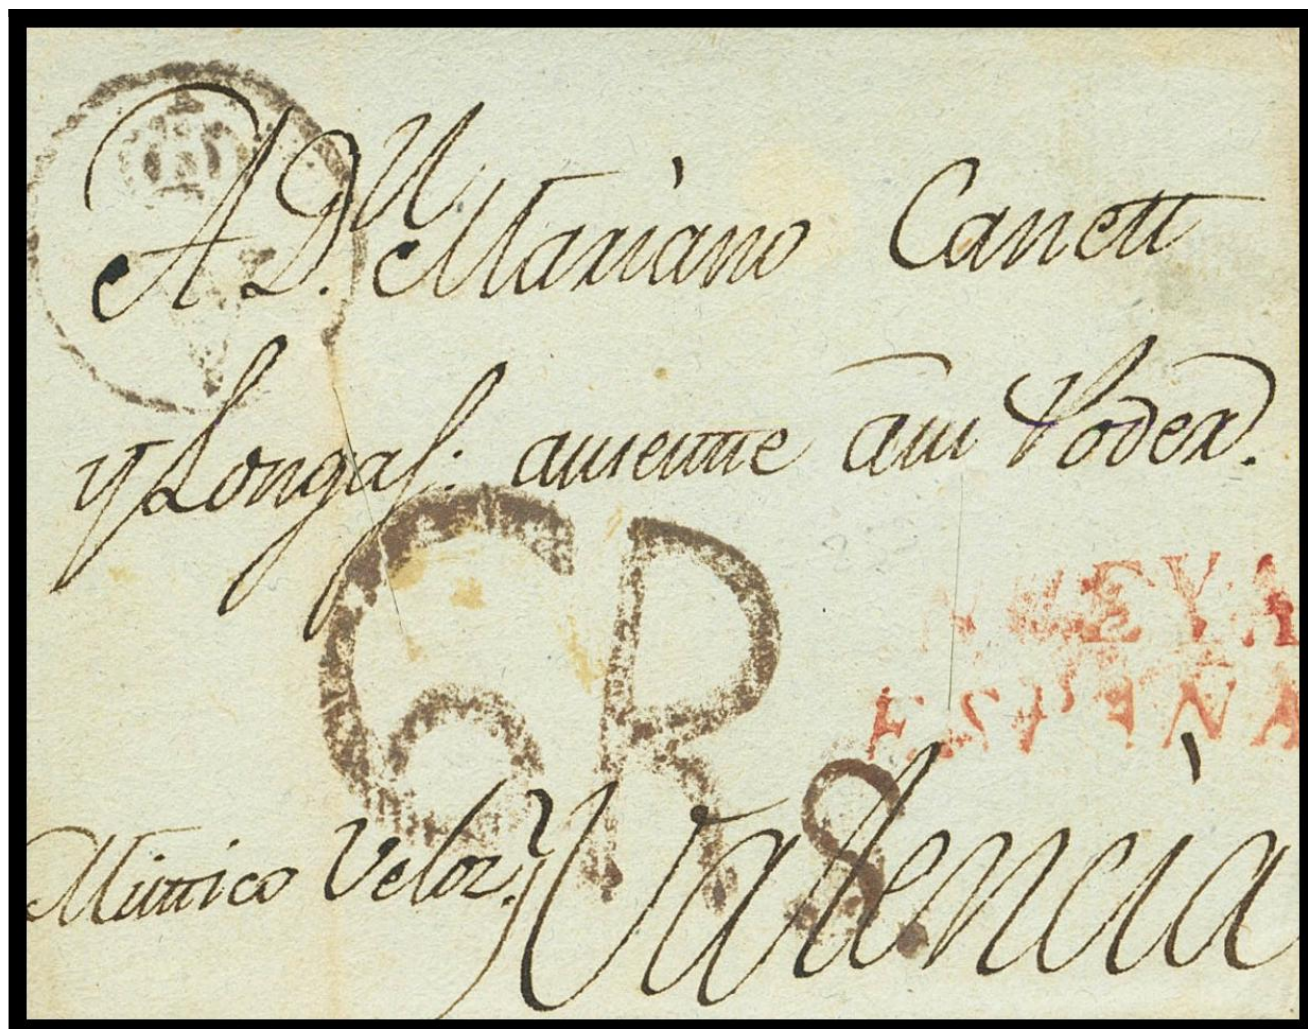 A D.n Mariano Canett
y Longas. ausente a su Poder.
NUEVA
ESPEÑA
6Rs.
Mistico Veloz. Valencia